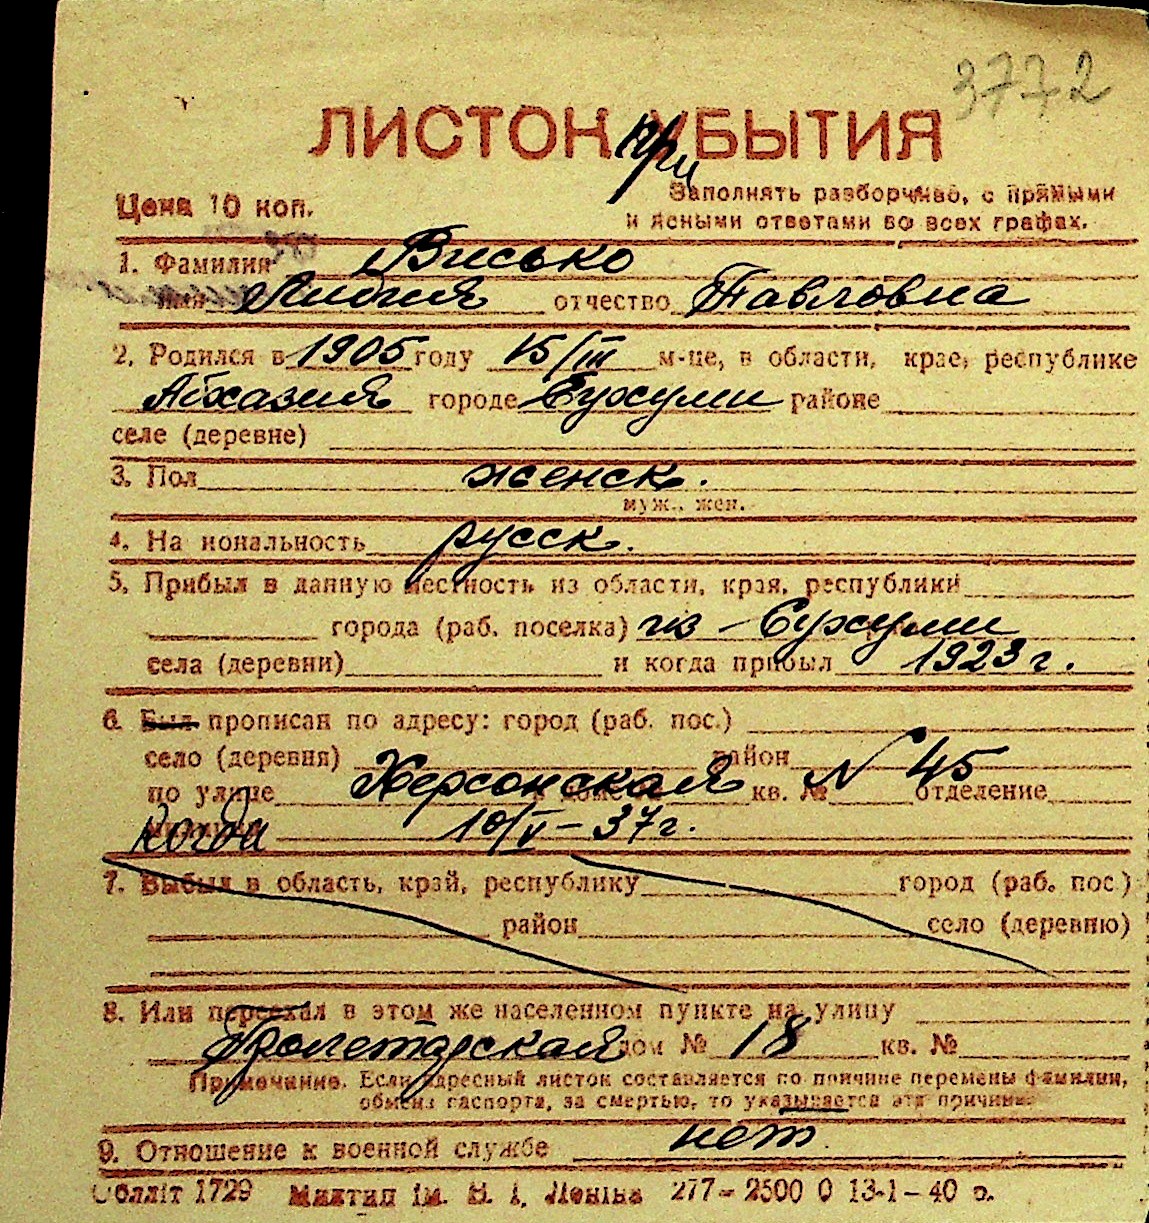 3772
ЛИСТОК при БЫТИЯ
Цена 10 коп.
Заполнять разборчиво, с прямыми
и ясными ответами во всех графах.
1. Фамилия Висько
имя Лидия отчество Павловна
2. Родился в 1905 году 15/III м-це, в области, крае, республике
Абхазия городе Сухуми районе
селе (деревне)
3. Пол женск.
муж., жен.
4. Национальность русск.
5. Прибыл в данную местность из области, края, республики
города (раб. поселка) из - Сухуми
села (деревни) и когда прибыл 1923 г.
6. Был прописан по адресу: город (раб. пос.)
село (деревня) район
по улице Херсонская N 45 кв. № отделение
когда 10/V - 37 г.
7. Выбыл в область, край, республику город (раб. пос.)
район село (деревню)
8. Или переехал в этом же населенном пункте на улицу
Пролетарская дом № 18 кв. №
Примечание. Если адресный листок составляется по причине перемены фамилии,
обмена паспорта, за смертью, то указывается эта причина.
9. Отношение к военной службе нет
Обллiт 1729 Миктип iм. В. I. Ленiна 277 - 2500 0 13-1-40 р.